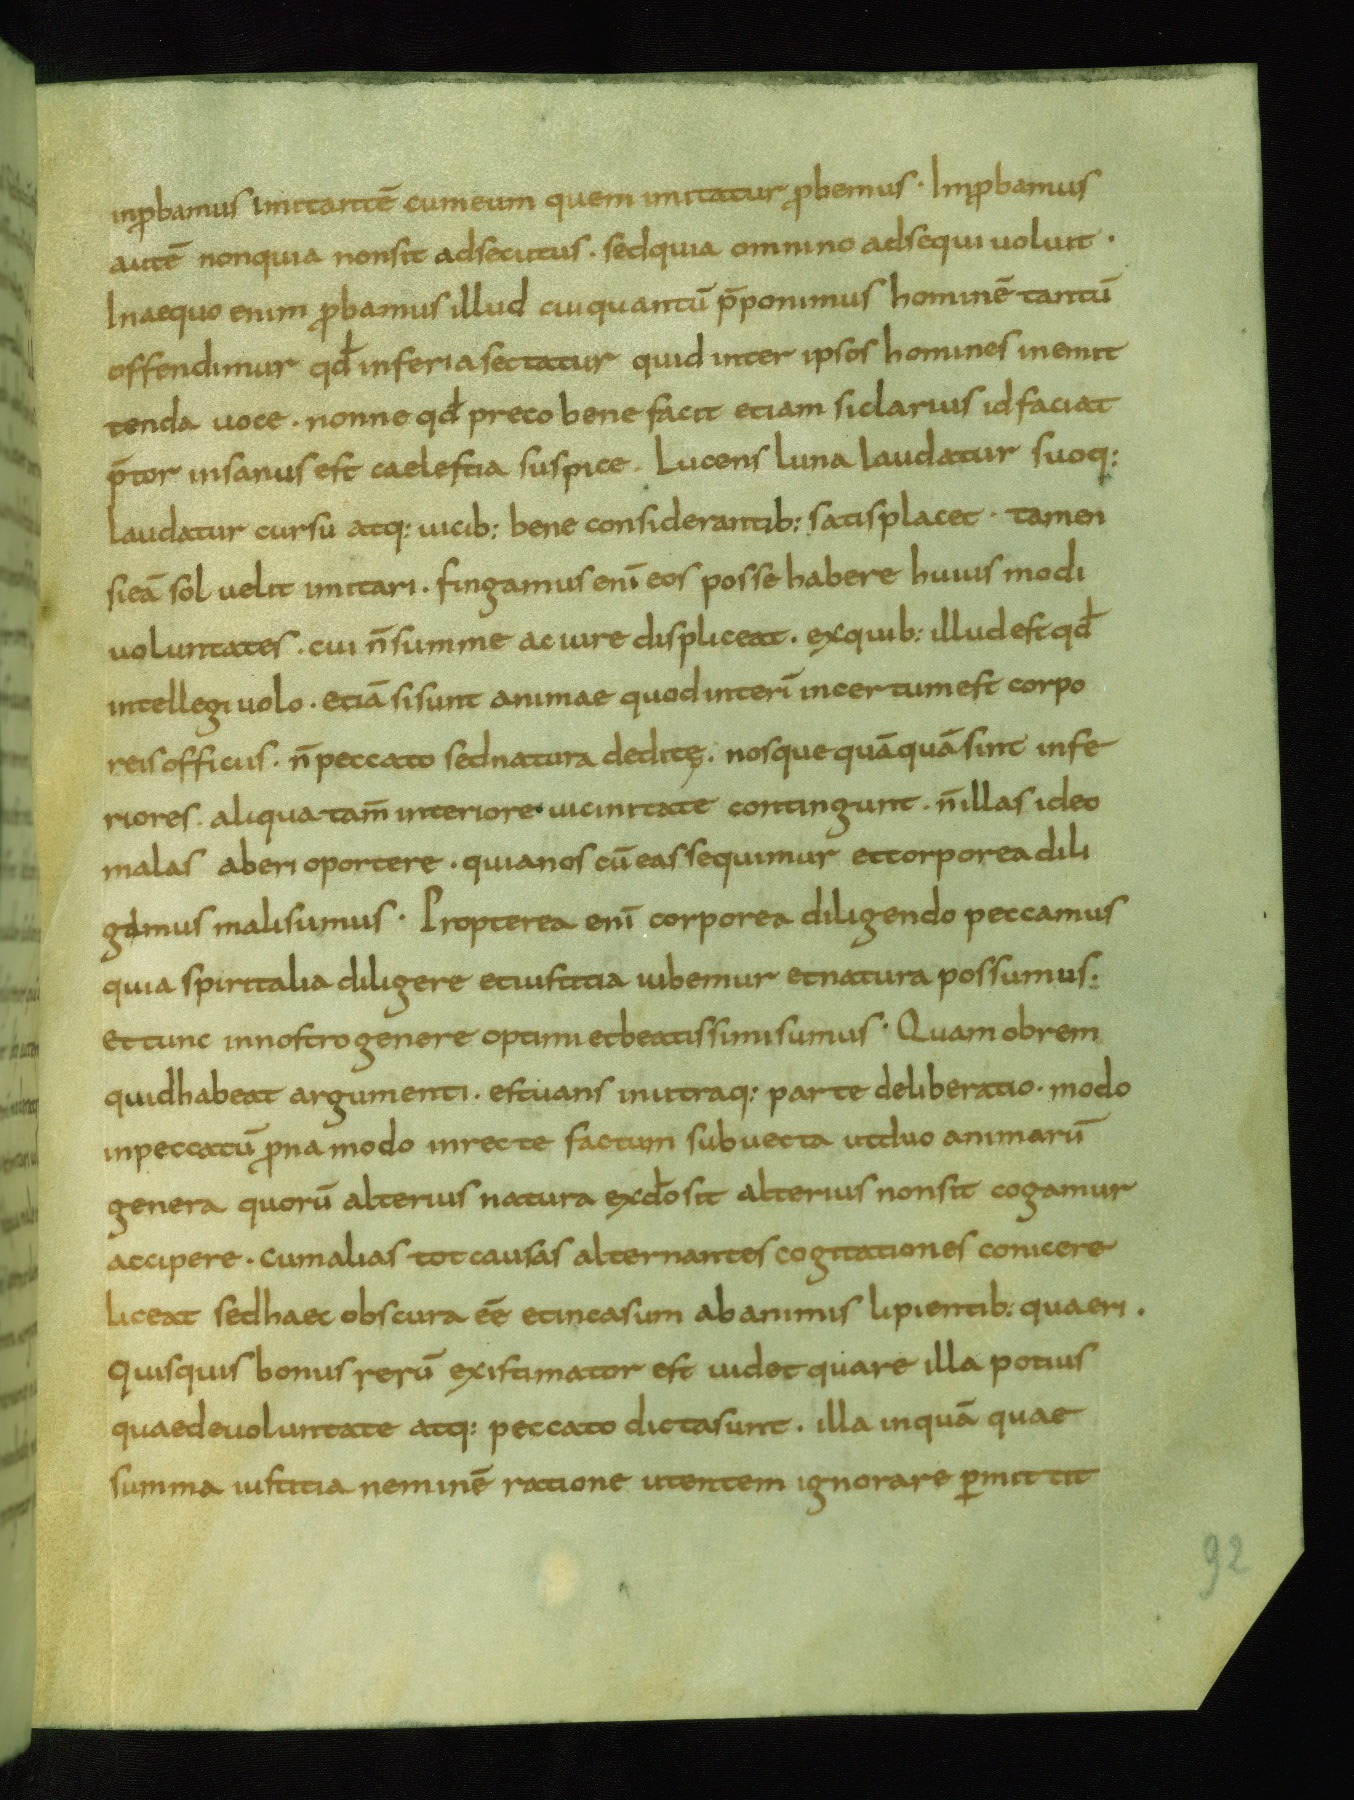 inꝓbamus imitantē cum eum quem imitatur ꝓbemus · Inꝓbamus
autē non quia non sit adsecutus · sed quia omnino adsequi uoluit ·
In aequo enim ꝓbamus illud cui quantū p̄ponimus hominē tantū
offendimur qd̄ inferia sectatur quid inter ipsos homines in emit
tenda uoce · nonne qd̄ preco bene facit etiam si clarius id faciat
p̄tor insanus est caelestia suspice · Lucens luna laudatur suoq:
laudatur cursu atq: uicib: bene considerantib: satis placet · tamen
si eā sol uelit imitari · fingamus enī eos posse habere huius modi
uoluntates · cui n̄ summe ac iure displiceat · ex quib: illud est qd̄
intellegi uolo · etiā si sunt animae quod interī incertum est corpo
reis officiis · n̄ peccato sed natura deditę · nosque quāquā sint infe
riores · aliqua tam̄ interiore uicinitate contingunt · n̄ illas ideo
malas aberi oportere · quia nos cū eas sequimur et corporea dili
gimus mali sumus · Propterea enī corporea diligendo peccamus
quia spiritalia diligere et iustitia iubemur et natura possumus:
et tunc in nostro genere optimi et beatissimi sumus · Quam obrem
quid habeat argumenti · estuans in utraq: parte deliberatio · modo
in peccatū ꝓna modo in recte factum subuecta ut duo animarū
genera quorū alterius natura ex do̅ sit alterius non sit cogamur
accipere · cum alias tot causas alternantes cogitationes conicere
liceat sed haec obscura eē et in casum ab animis lipientib: quaeri ·
Quisquis bonus rerū existimator est uidet quare illa potius
quae de uoluntate atq: peccato dicta sunt · illa inquā quae
summa iustitia neminē ratione utentem ignorare ꝑmittit
92